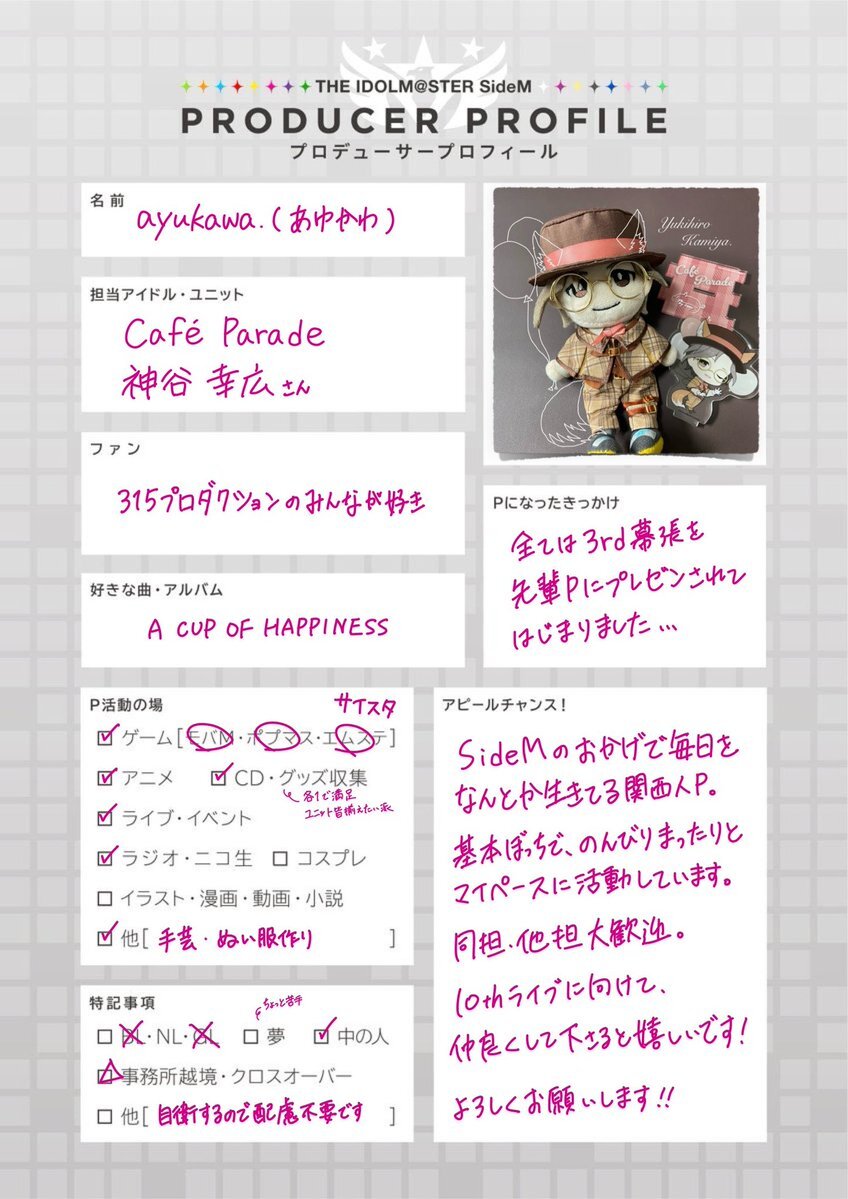 THE IDOLM@STER SideM
PRODUCER PROFILE
プロデューサープロフィール
名前
ayukawa.(あゆかわ)
担当アイドル・ユニット
Café Parade
神谷 幸広さん
ファン
315プロダクションのみんなが好き
好きな曲・アルバム
A CUP OF HAPPINESS
Yukihiro
Kamiya.
Café
Parade
Pになったきっかけ
全ては3rd幕張を
先輩Pにプレゼンされて
はじまりました…
P活動の場
サイスタ
ゲーム[モバM・ポプマス・エムステ]
アニメ
CD・グッズ収集
各1で満足
ユニット皆揃えたい派
ライブ・イベント
ラジオ・ニコ生
コスプレ
イラスト・漫画・動画・小説
他[手芸・ぬい服作り]
特記事項
ちょっと苦手
BL・NL・GL
夢
中の人
事務所越境・クロスオーバー
他[自衛するので配慮不要です]
アピールチャンス!
SideMのおかげで毎日を
なんとか生きてる関西人P。
基本ぼっちで、のんびりまったりと
マイペースに活動しています。
同担・他担大歓迎。
10thライブに向けて、
仲良くして下さると嬉しいです!
よろしくお願いします!!